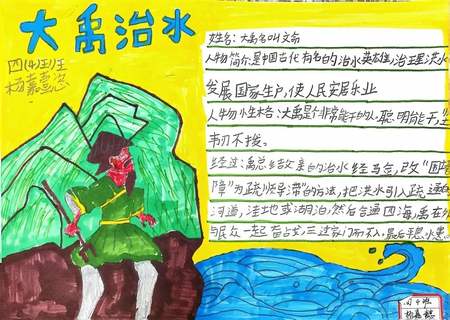 大禹治水
四(4)班
杨嘉懿
姓名:大禹名叫文命
人物简介:是中国古代有名的治水英雄,治理洪水
发展国家生户,使人民安居乐业
人物性格:大禹是个非常能干的人,聪明能干,坚
韧不拔。
经过:禹总结父亲的治水经验,改"围堵
障"为疏顺导滞"的方法,把洪水引入疏通的
河道,洼地或湖泊,然后合通四海,禹在外
与民众一起奋战,三过家门而不入,最后平息水患
四4班
杨嘉懿